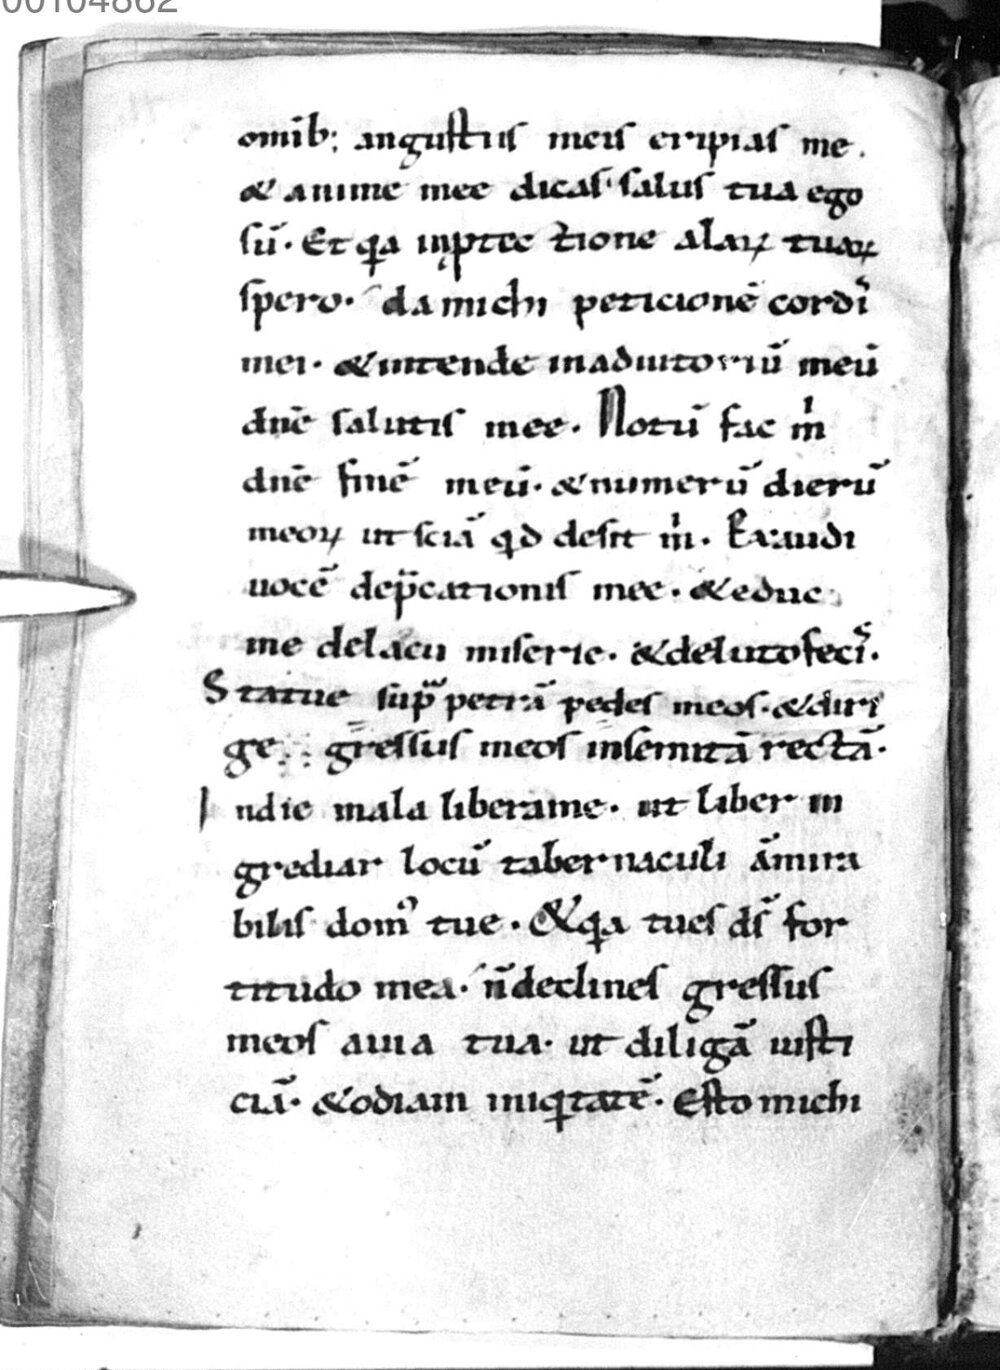 00104862
omīb; anguſtiiſ meiſ eripiaſ me.
& anime mee dicaſ· ſaluſ tua ego
ſū· Et qa inptec tione alaꝝ tuaꝝ
ſpero· da michi peticionē cordiſ
mei· & intende in adiutoriū meū
dnē ſalutiſ mee· Notū fac m
dnē finē meū· & numerū dierū
meoꝝ ut ſciā qd deſit m· Exaudi
uocē dep̄cationiſ mee· & educ
me delacu miſerie· & deluto feciſ·
Statue ſup petrā pedeſ meoſ· & diri
ge greſſuſ meoſ inſemitā rectā·
Indie mala liberame· ut liber in
grediar locū tabernaculi āmira
biliſ domꝰ tue· & qa tueſ dſ̄ for
titudo mea· n̄declineſ greſſuſ
meoſ auia tua· ut diligā iuſti
ciā· & odiam iniqtatē· Eſto michi